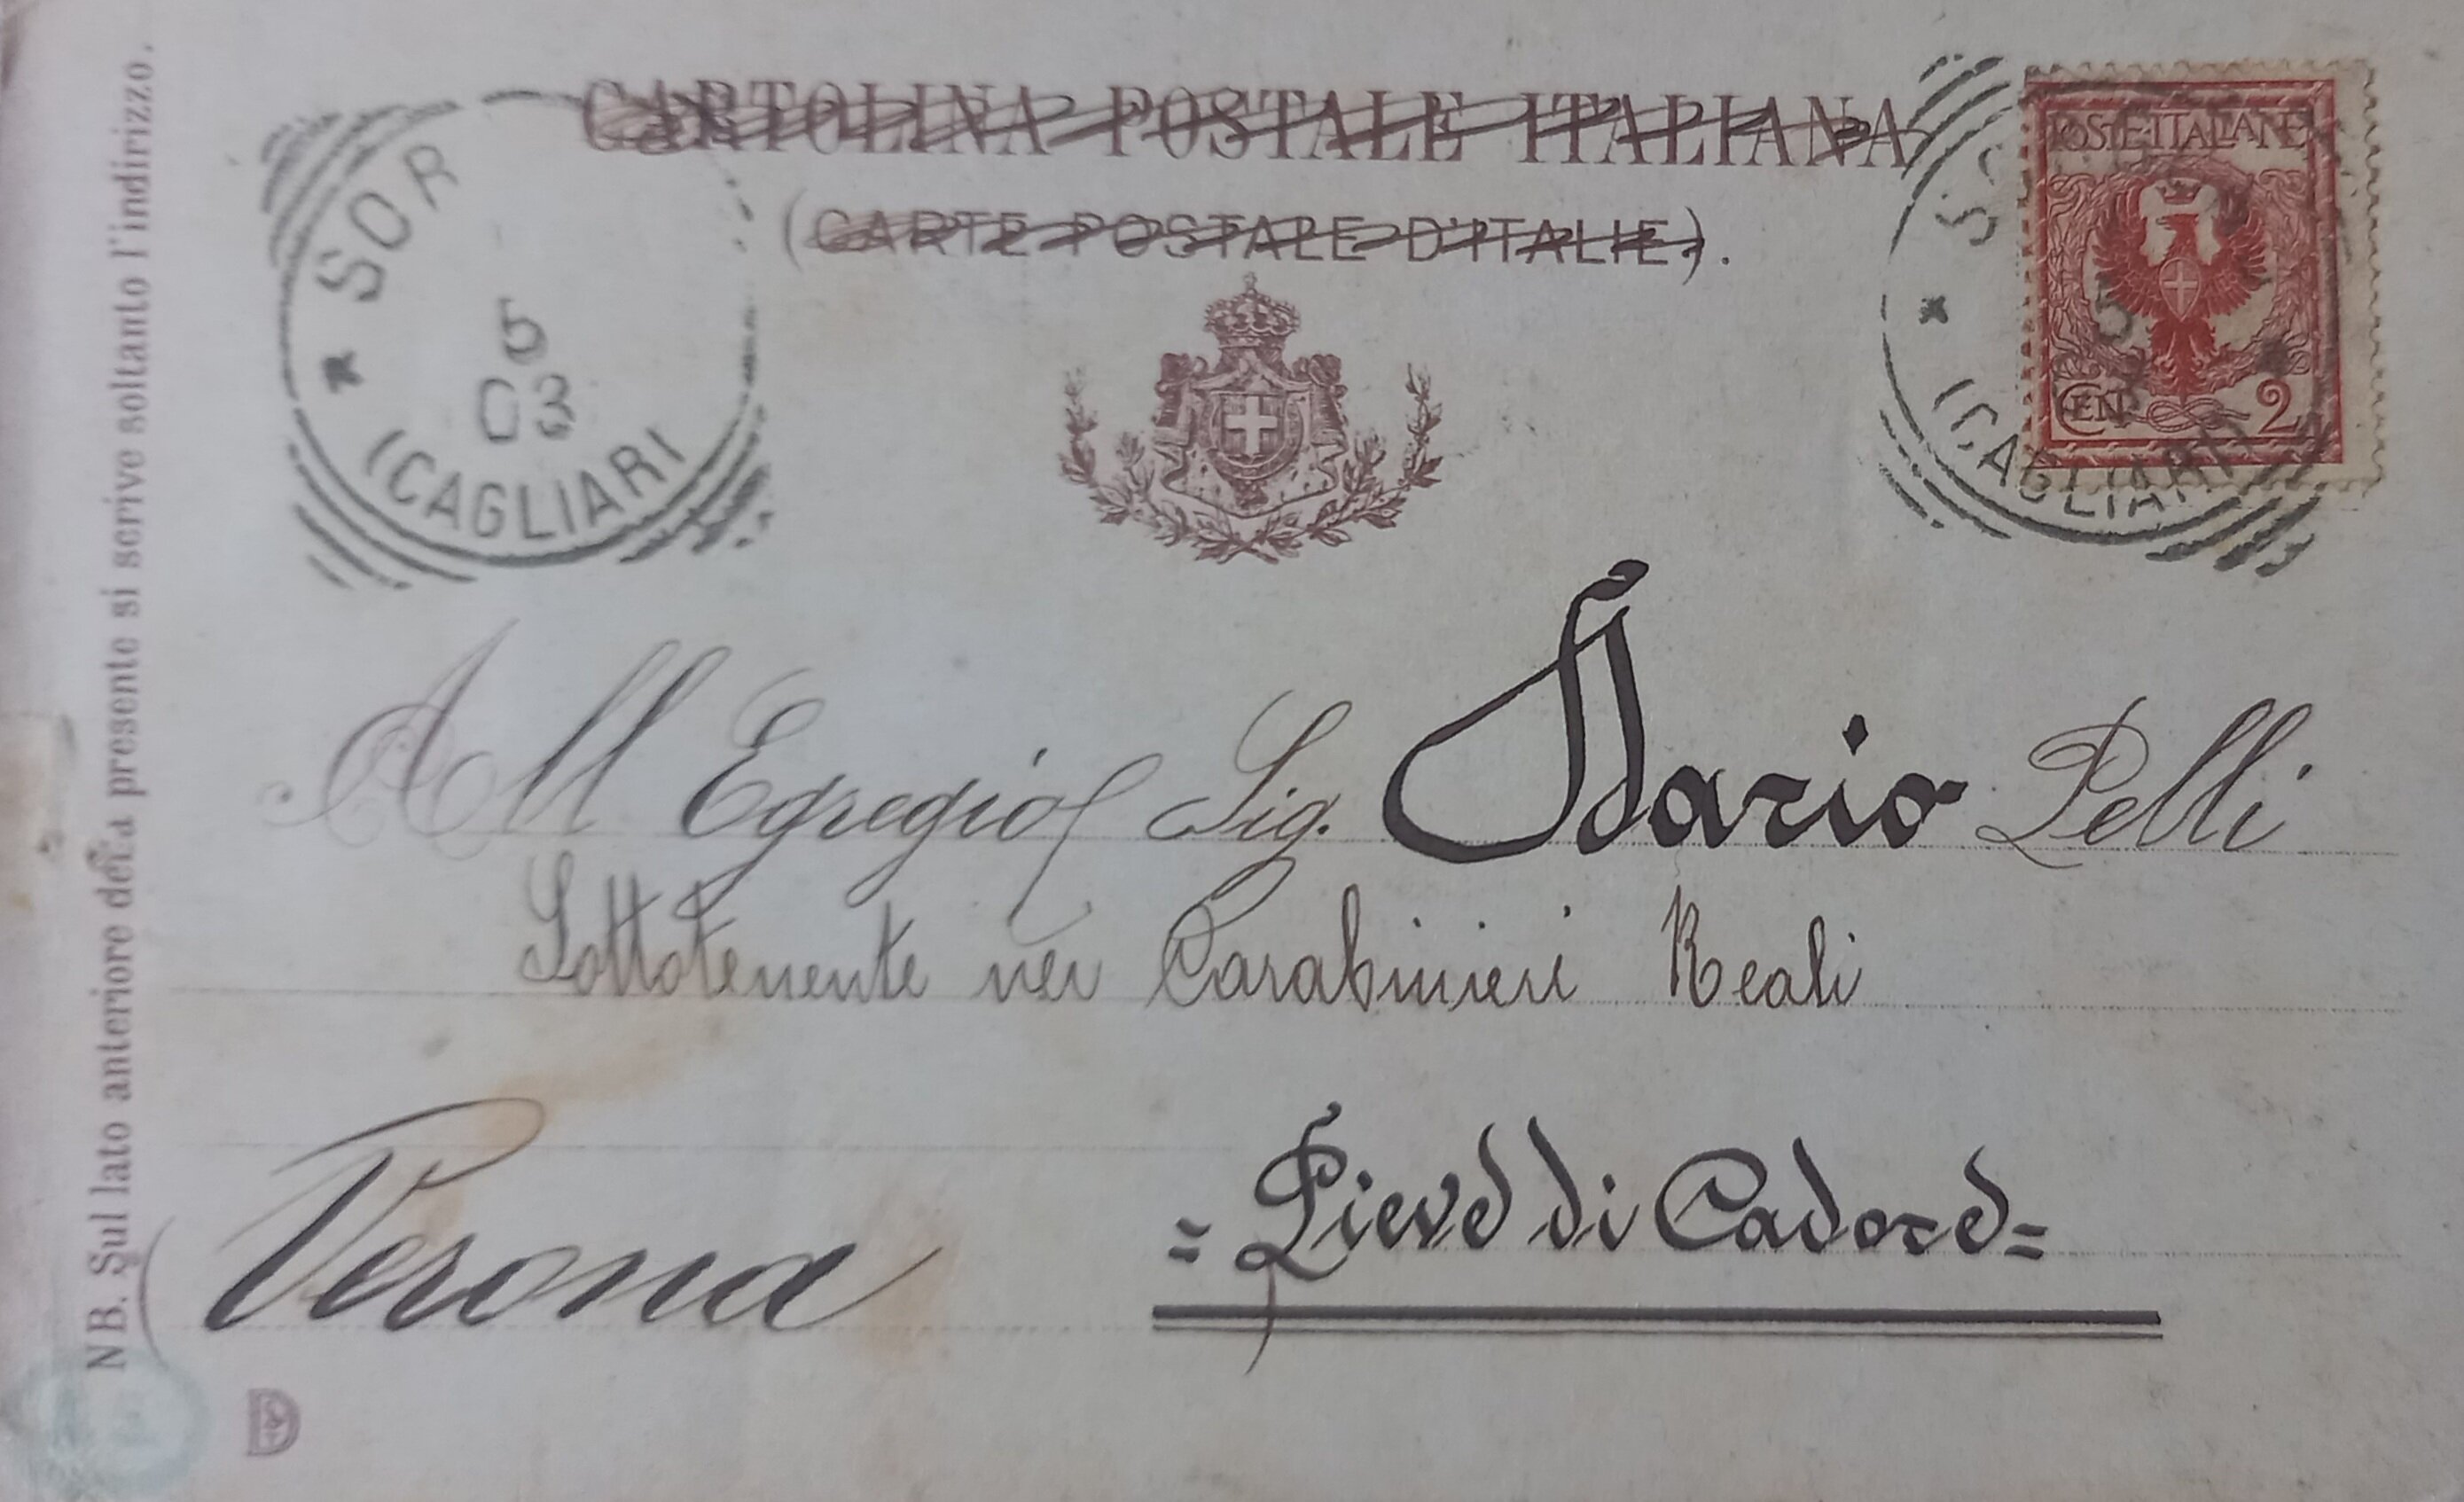 CARTOLINA POSTALE ITALIANA
(CARTE POSTALE D'ITALIE).
POSTE·ITALIANE
CEN 2
SOR
5
03
(CAGLIARI
S
5
(CAGLIARI
All' Egregio Sig. Dario Pelli
Sottotenente nei Carabinieri Reali
Verona
= Pieve di Cadore =
NB. Sul lato anteriore della presente si scrive soltanto l'indirizzo.
D